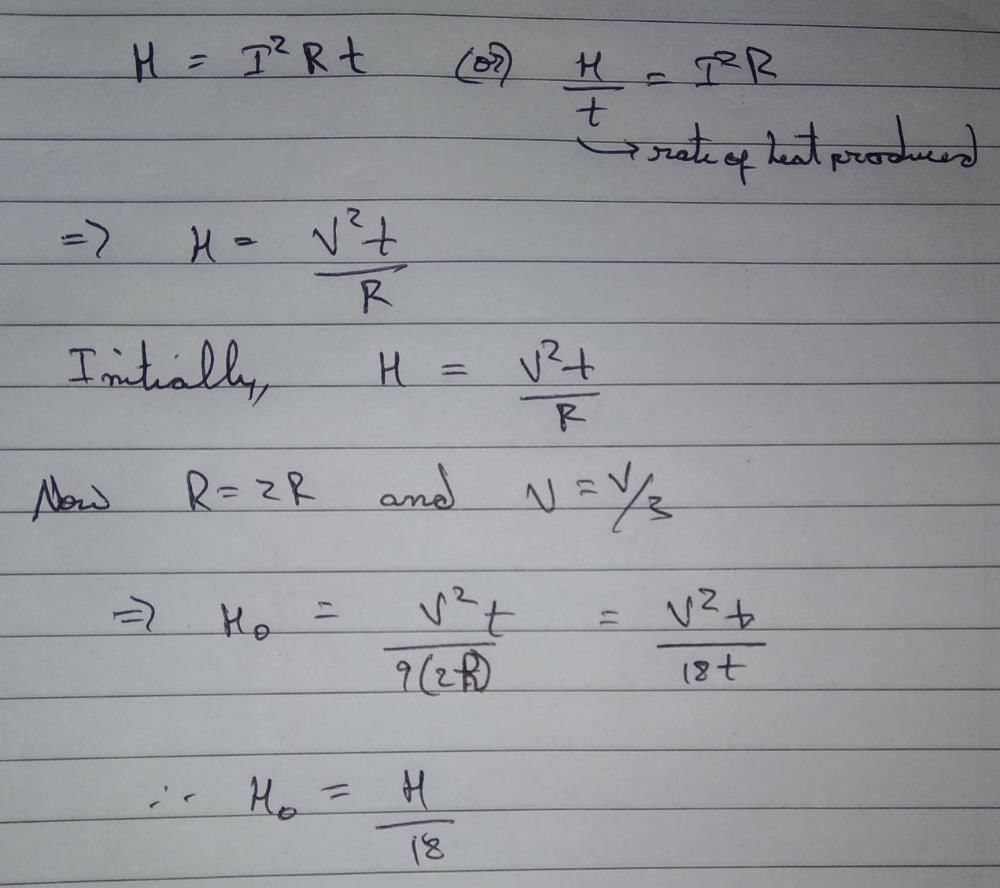 H = I²Rt (or) H/t = I²R
→ rate of heat produced
=> H = V²t/R
Initially, H = V²t/R
Now R = 2R and V = V/3
=> H₀ = V²t/9(2R) = V²t/18t
∴ H₀ = H/18